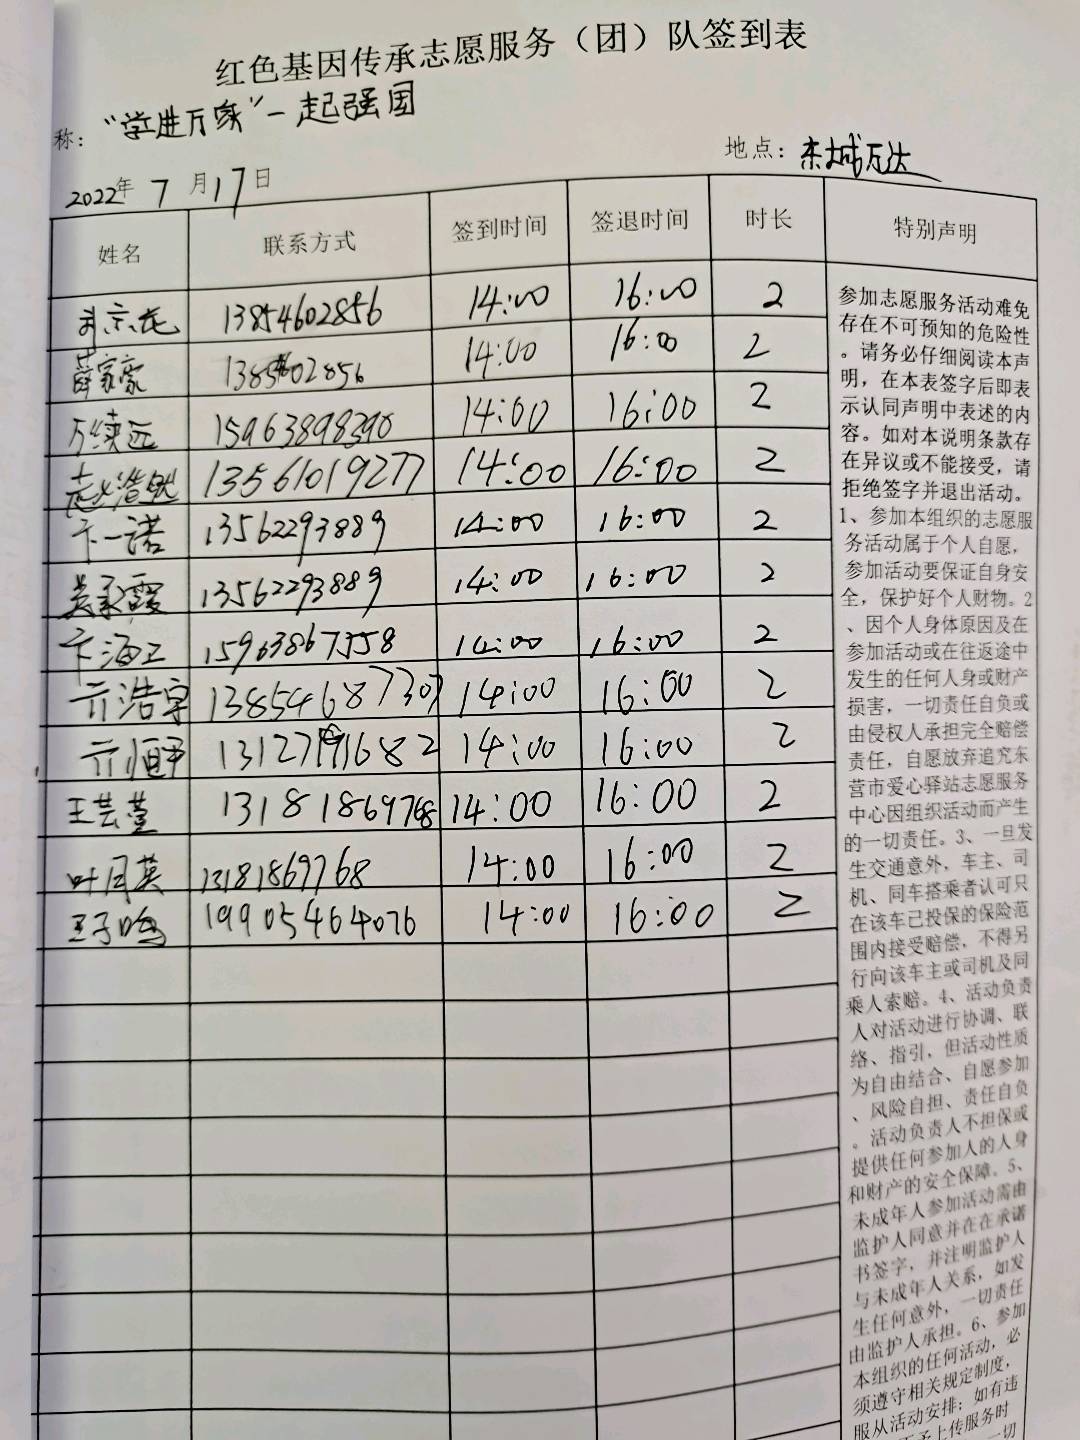 红色基因传承志愿服务（团）队签到表
称：“学进万家”一起强国
地点：东城万达
2022年 7 月 17 日
姓名 联系方式 签到时间 签退时间 时长 特别声明
13854602856 14:00 16:00 2
薛家豪 14:00 16:00 2
万续远 15963898390 14:00 16:00 2
赵浩然 13561019277 14:00 16:00 2
卞一诺 13562293889 14:00 16:00 2
吴承霞 13562293889 14:00 16:00 2
卞海卫 15963867358 14:00 16:00 2
亓浩宇 13854687307 14:00 16:00 2
14:00 16:00 2
王芸萱 13181869768 14:00 16:00 2
叶月英 13181869768 14:00 16:00 2
王子鸣 19905464076 14:00 16:00 2
参加志愿服务活动难免
存在不可预知的危险性
。请务必仔细阅读本声
明，在本表签字后即表
示认同声明中表述的内
容。如对本说明条款存
在异议或不能接受，请
拒绝签字并退出活动。
1、参加本组织的志愿服
务活动属于个人自愿，
参加活动要保证自身安
全，保护好个人财物。2
、因个人身体原因及在
参加活动或在往返途中
发生的任何人身或财产
损害，一切责任自负或
由侵权人承担完全赔偿
责任，自愿放弃追究东
营市爱心驿站志愿服务
中心因组织活动而产生
的一切责任。3、一旦发
生交通意外，车主、司
机、同车搭乘者认可只
在该车已投保的保险范
围内接受赔偿，不得另
行向该车主或司机及同
乘人索赔。4、活动负责
人对活动进行协调、联
络、指引，但活动性质
为自由结合、自愿参加
、风险自担、责任自负
。活动负责人不担保或
提供任何参加人的人身
和财产的安全保障。5、
未成年人参加活动需由
监护人同意并在在承诺
书签字，并注明监护人
与未成年人关系，如发
生任何意外，一切责任
由监护人承担。6、参加
本组织的任何活动，必
须遵守相关规定制度，
服从活动安排；如有违
上传服务时
一切